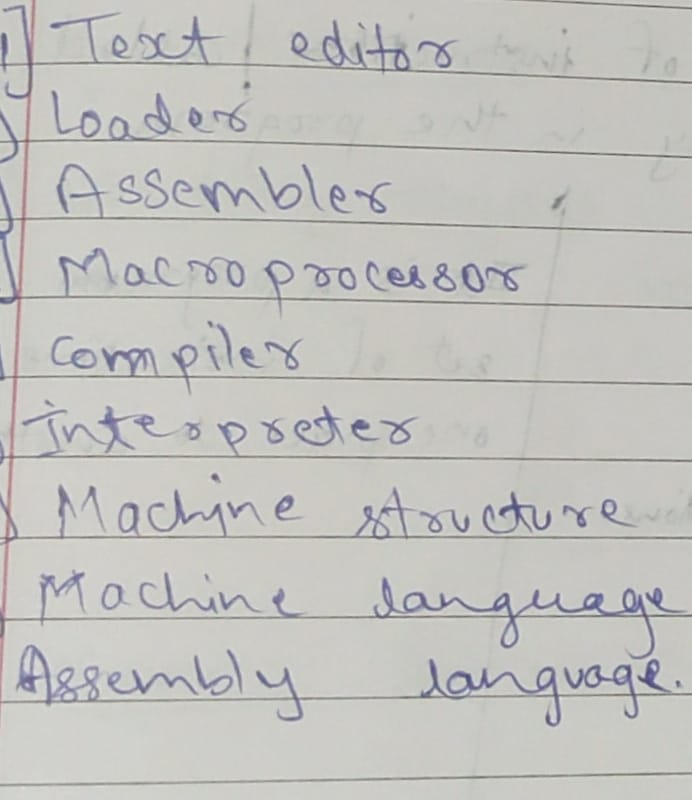 1] Text editor
Loader
Assembler
Macroprocessor
Compiler
Interpreter
Machine structure
Machine language
Assembly language.